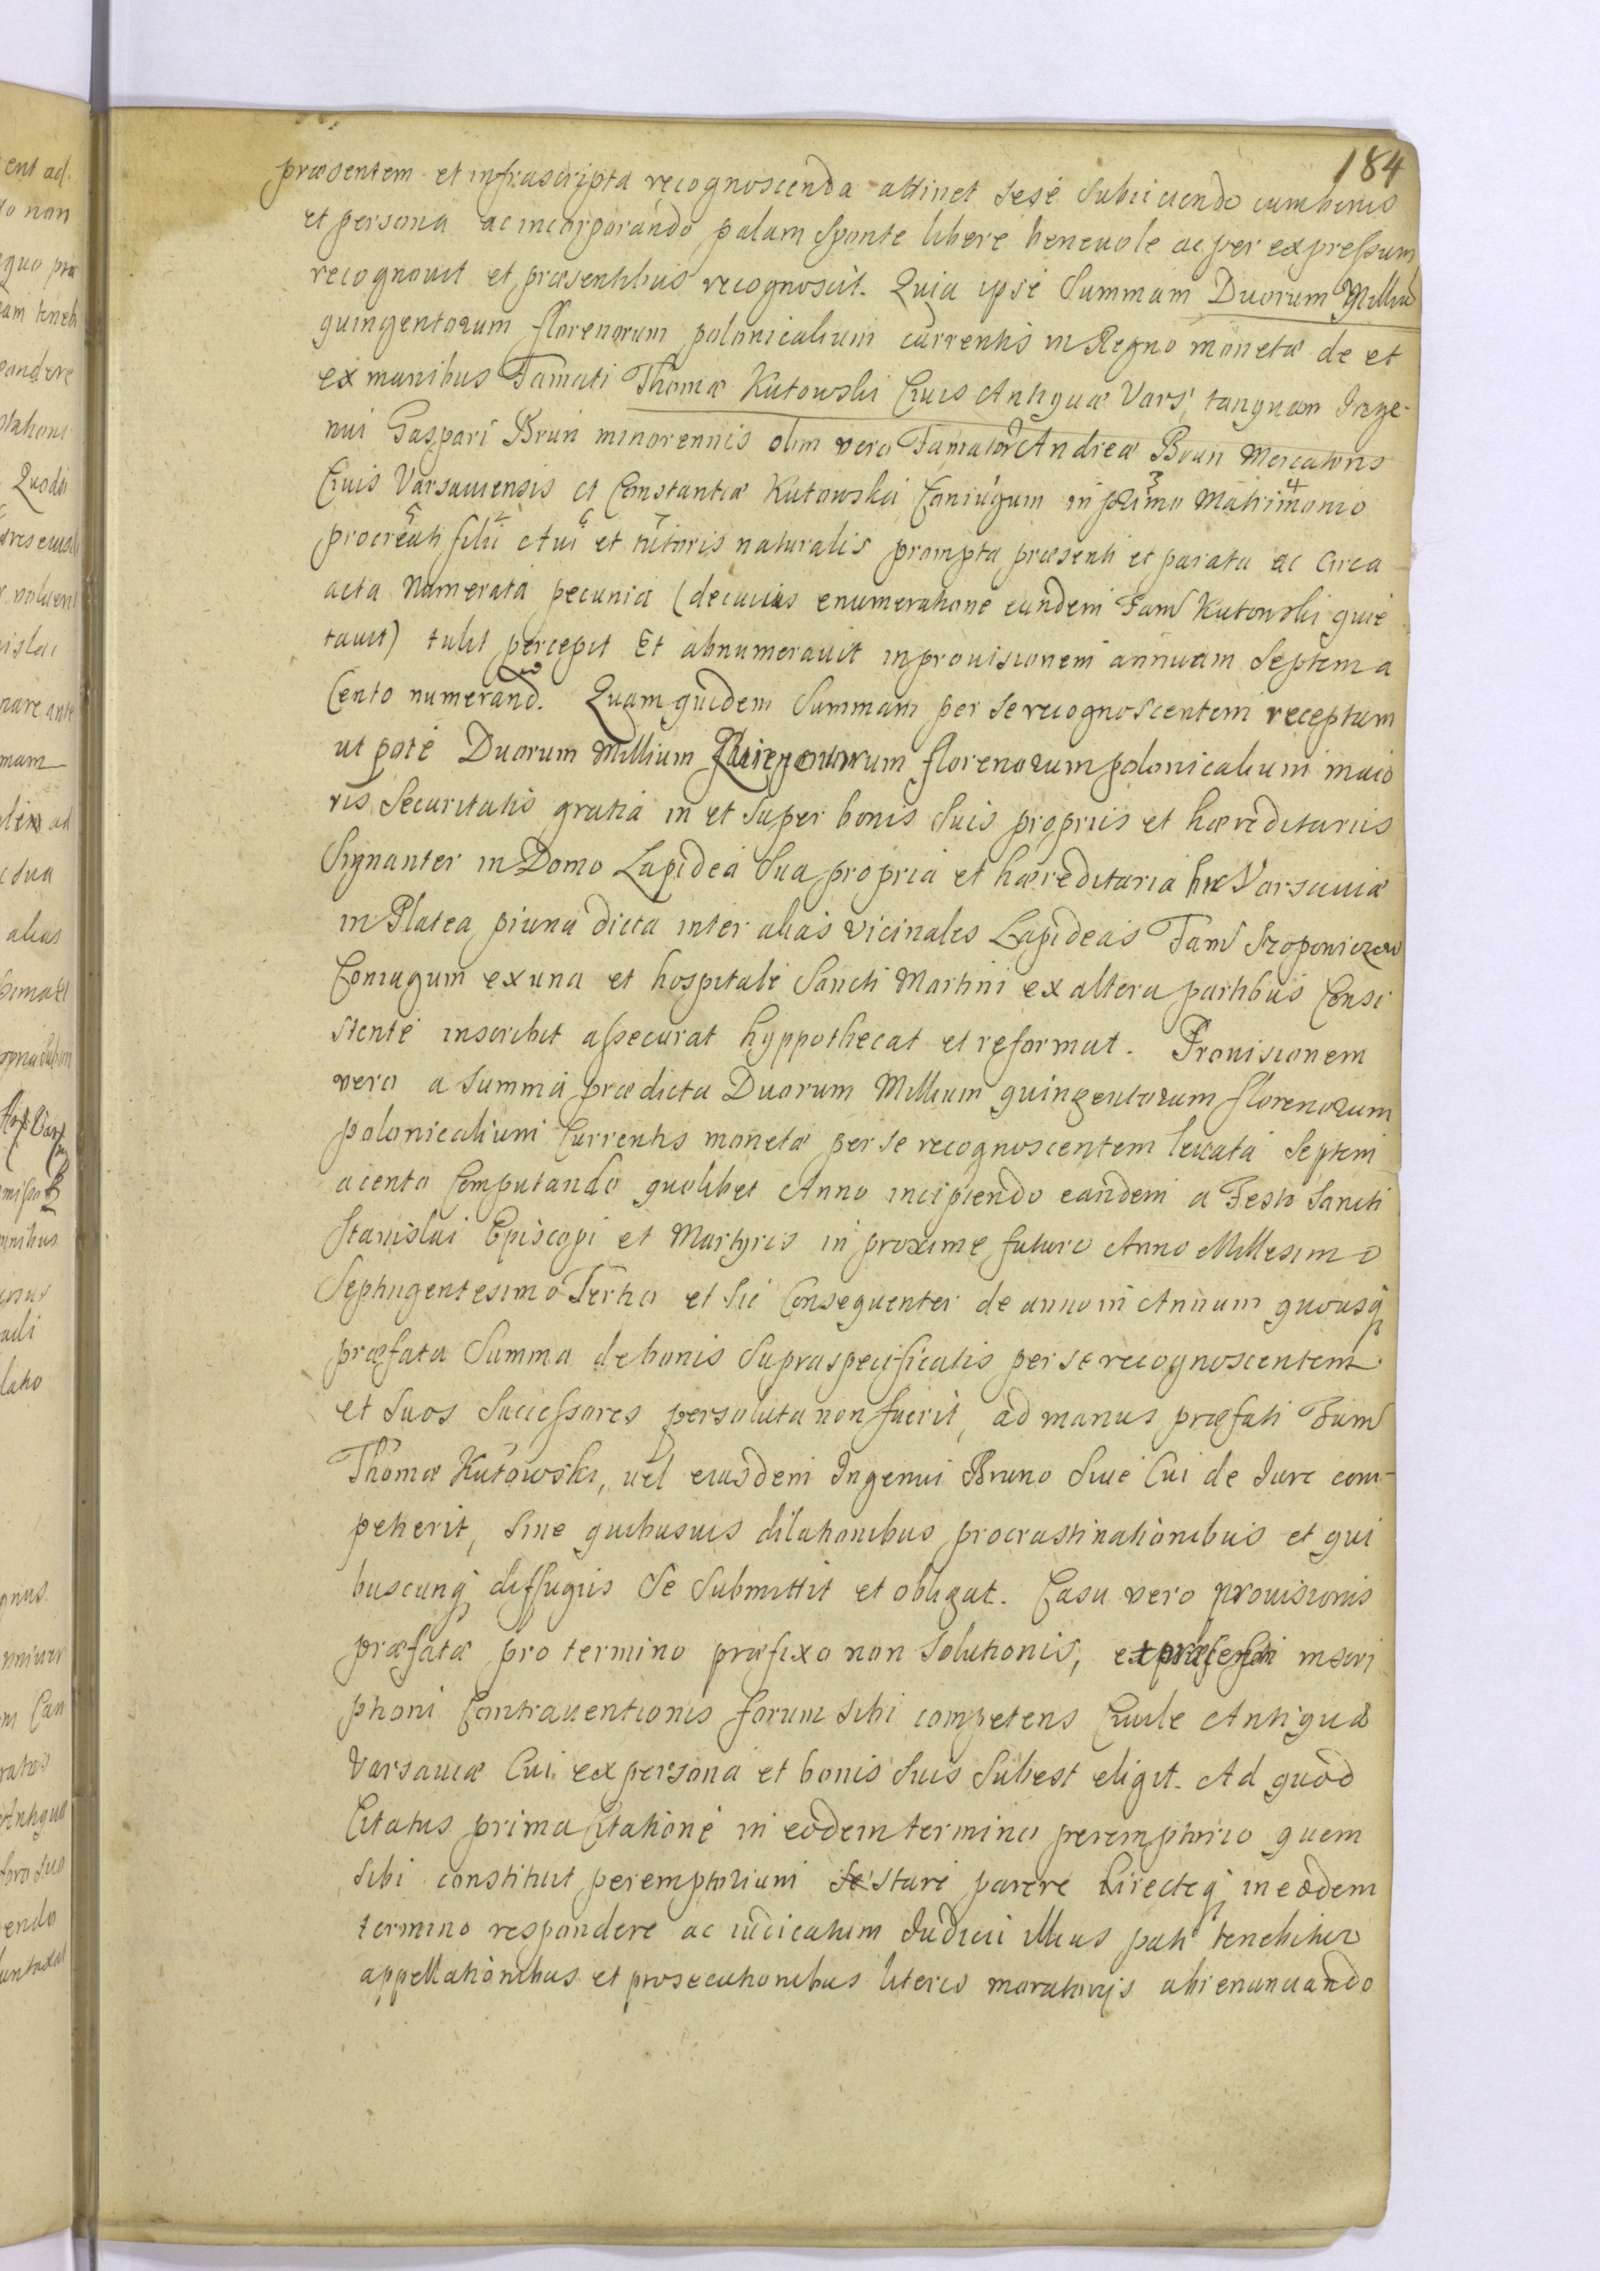 184
præsentem et infrascripta recognoscenda attinet sese subiiciendo cum bonis
et persona ac incorporando palam sponte libere beneuole ac per expressum
recognouit et præsentibus recognoscit. Quia ipse Summam Duorum Milliū
quingentorum florenorum polonicalium currentis in Regno monetæ de et
ex manibus Famati Thomæ Kutowski Ciuis Antiquæ Vars, tanquam Inge-
nui Gaspari Brun minorennis olim vero Famator Andreæ Brun Mercatoris
Ciuis Varsauiensis et Constantiæ Kutowski Coniugum in primo 3 Matrimonio 4
procreati 5 filii 2 Aui 6 et tutoris 7 naturalis prompta præsenti et parata ac circa
acta numerata pecunia (de cuius enumeratione eundem Fam Kutowski quie
tauit) tulit percepit Et abnumerauit in prouisionem annuam Septem a
Cento numerand. Quam quidem Summam per se recognoscentem receptam
ut pote Duorum Millium florenorum polonicalium maio
ris Securitatis gratia in et super bonis suis propriis et hæreditariis
Signanter in Domo Lapidea sua propria et hæreditaria hic Varsauiæ
in Platea piuna dicta inter alias vicinales Lapideas Fam
Coniugum ex una et hospitale Sancti Martini ex altera partibus Consi
stente inscribit assecurat hyppothecat et reformat. Prouisionem
vero a Summa prædicta Duorum Millium quingentorum florenorum
polonicalium Currentis monetæ per se recognoscentem leuata Septem
a cento Computando quolibet Anno incipiendo eandem a Festo Sancti
Stanislai Episcopi et Martyris in proxime futuro Anno Millesimo
Septingentesimo Tertio et sic Consequenter de anno in Annum quousq
præfata Summa de bonis supraspecificatis per se recognoscentem
et suos Successores persoluta non fuerit, ad manus præfati Fam
Thomæ Kutowski, vel eiusdem Ingenui Bruno siue Cui de Iure com-
petierit, sine quibusuis dilationibus procrastinationibus et qui
buscunq diffugiis se submittit et obligat. Casu vero prouisionis
præfatæ pro termino præfixo non solutionis, et præsenti inscri
ptioni Contrauentionis forum sibi competens Ciuile Antiquæ
Varsauiæ Cui ex persona et bonis suis subest eligit. Ad quod
Citatus prima Citatione in eodem termino peremptorio quem
sibi constituit peremptorium se stare parere directeq in eodem
termino respondere ac iudicatum Iudicii illius pati tenebitur
appellationibus et prosecutionibus literis moratorijs abrenunciando